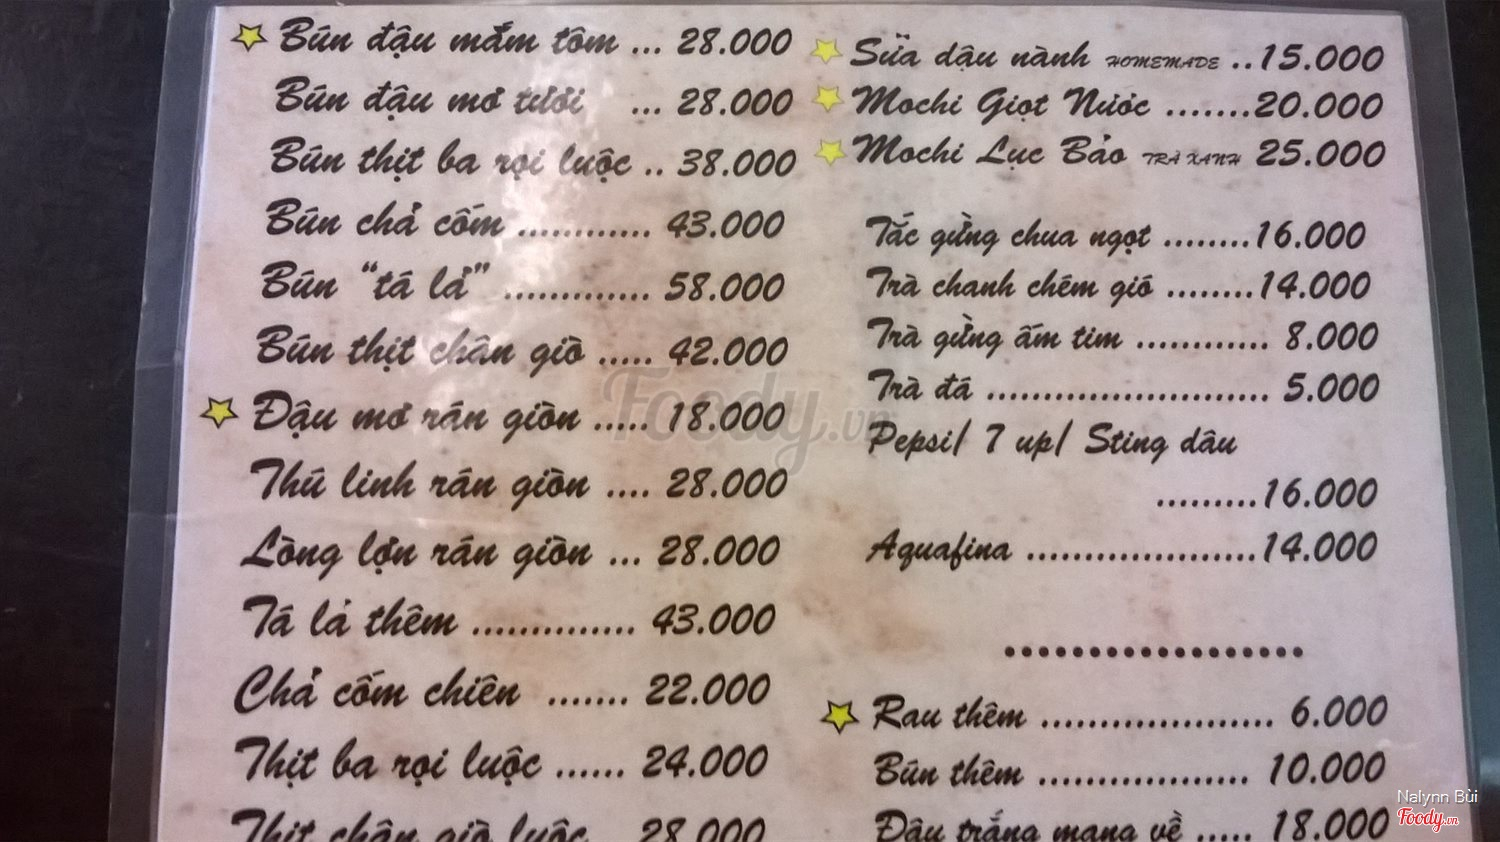 Bún đậu mắm tôm ... 28.000
Bún đậu mơ tươi ... 28.000
Bún thịt ba rọi luộc .. 38.000
Bún chả cốm ............ 43.000
Bún "tá lả" ............. 58.000
Bún thịt chân giò ..... 42.000
Đậu mơ rán giòn ..... 18.000
Thú linh rán giòn .... 28.000
Lòng lợn rán giòn ... 28.000
Tá lả thêm .............. 43.000
Chả cốm chiên ....... 22.000
Thịt ba rọi luộc ...... 24.000
Thịt chân giò luộc 28.000
Sữa đậu nành HOMEMADE ..15.000
Mochi Giọt Nước .......20.000
Mochi Lục Bảo TRÀ XANH 25.000
Tắc gừng chua ngọt ........16.000
Trà chanh chém gió ........14.000
Trà gừng ấm tim ............ 8.000
Trà đá ......................... 5.000
Pepsi/ 7 up/ Sting dâu
.........16.000
Aquafina ....................14.000
Rau thêm ..................... 6.000
Bún thêm ................... 10.000
Đậu trắng mang về ..... 18.000
Foody.vn
Nalynn Bùi
Foody.vn